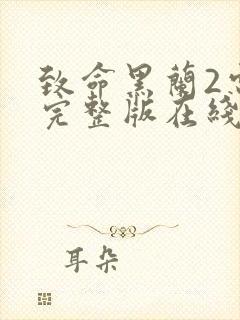 致命黑蘭2
完整版在綫
耳朵